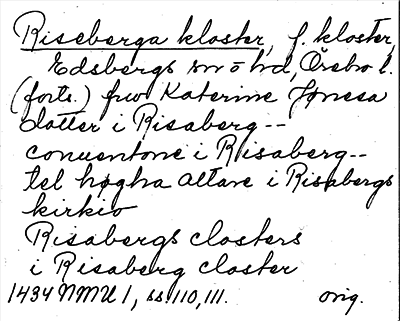 Riseberga kloster, f. kloster,
Edsbergs sn o hd, Örebro l.
(forts.) frw Katerine Jønesa
datter i Risaberg--
conuentone i Risaberg--
tel høgha altare i Risabergs
kirkio
Risabergs closters
i Risaberg closter
1434 NMU 1, ss 110, 111. orig.